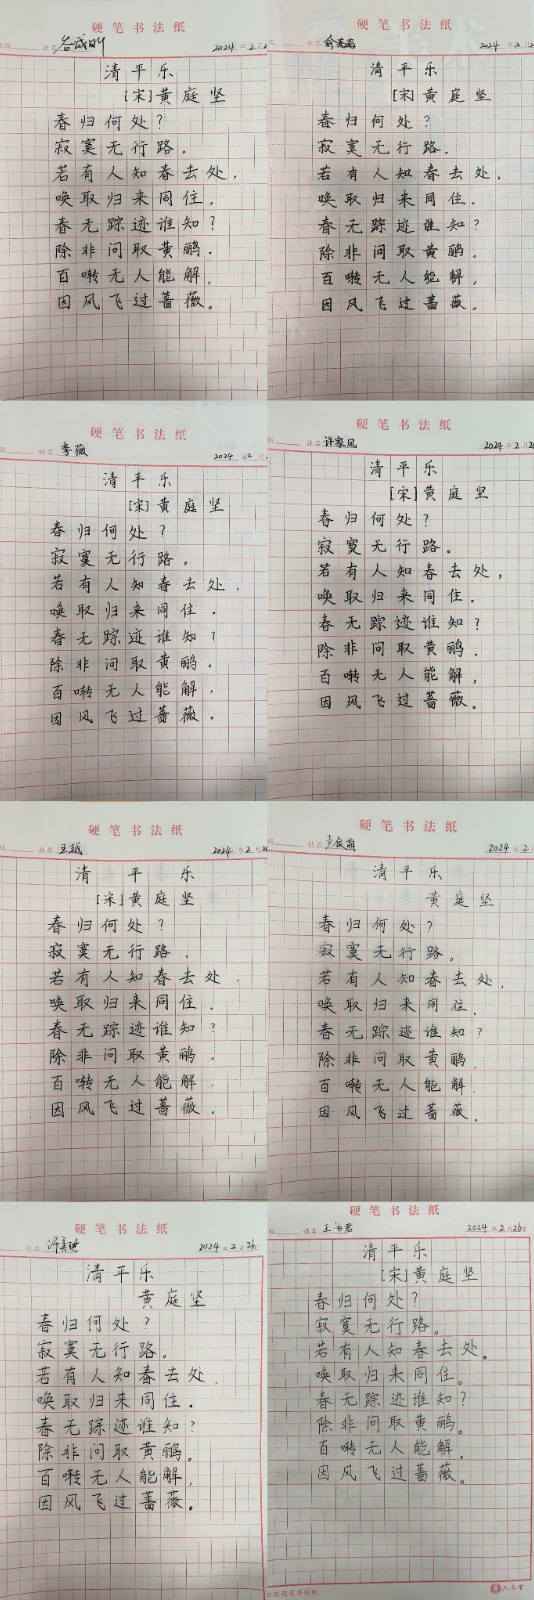 硬笔书法纸
姓名 2024年2月2
清平乐
[宋]黄庭坚
春归何处?
寂寞无行路.
若有人知春去处,
唤取归来同住。
春无踪迹谁知?
除非问取黄鹂.
百啭无人能解,
因风飞过蔷薇。
硬笔书法纸
姓名 2024年2月2
清平乐
[宋]黄庭坚
春归何处?
寂寞无行路.
若有人知春去处,
唤取归来同住。
春无踪迹谁知?
除非问取黄鹂。
百啭无人能解,
因风飞过蔷薇。
硬笔书法纸
班 姓名 李薇 2024年2
清平乐
[宋]黄庭坚
春归何处?
寂寞无行路。
若有人知春去处,
唤取归来同住.
春无踪迹谁知?
除非问取黄鹂.
百啭无人能解,
因风飞过蔷薇.
硬笔书法纸
班 姓名 许家凤 2024年2月26
清平乐
[宋]黄庭坚
春归何处?
寂寞无行路。
若有人知春去处,
唤取归来同住.
春无踪迹谁知?
除非问取黄鹂.
百啭无人能解,
因风飞过蔷薇.
硬笔书法纸
姓名 王越 2024年2月26
清平乐
[宋]黄庭坚
春归何处?
寂寞无行路.
若有人知春去处,
唤取归来同住.
春无踪迹谁知?
除非问取黄鹂.
百啭无人能解
因风飞过蔷薇.
硬笔书法纸
姓名 2024年2
清平乐
黄庭坚
春归何处?
寂寞无行路。
若有人知春去处,
唤取归来同住.
春无踪迹谁知?
除非问取黄鹂
百啭无人能解
因风飞过蔷薇.
硬笔书法纸
姓名 2024年2月26
清平乐
黄庭坚
春归何处?
寂寞无行路。
若有人知春去处,
唤取归来同住.
春无踪迹谁知?
除非问取黄鹂。
百啭无人能解,
因风飞过蔷薇.
硬笔书法纸
姓名 2024年2月26
清平乐
[宋]黄庭坚
春归何处?
寂寞无行路。
若有人知春去处。
唤取归来同住。
春无踪迹谁知?
除非问取黄鹂。
百啭无人能解,
因风飞过蔷薇。
六品堂